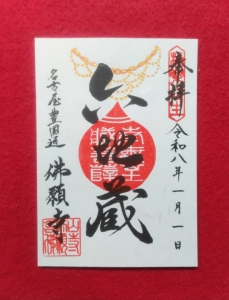 奉拝
令和八年一月一日
六地蔵
名古屋豊国通
佛願寺